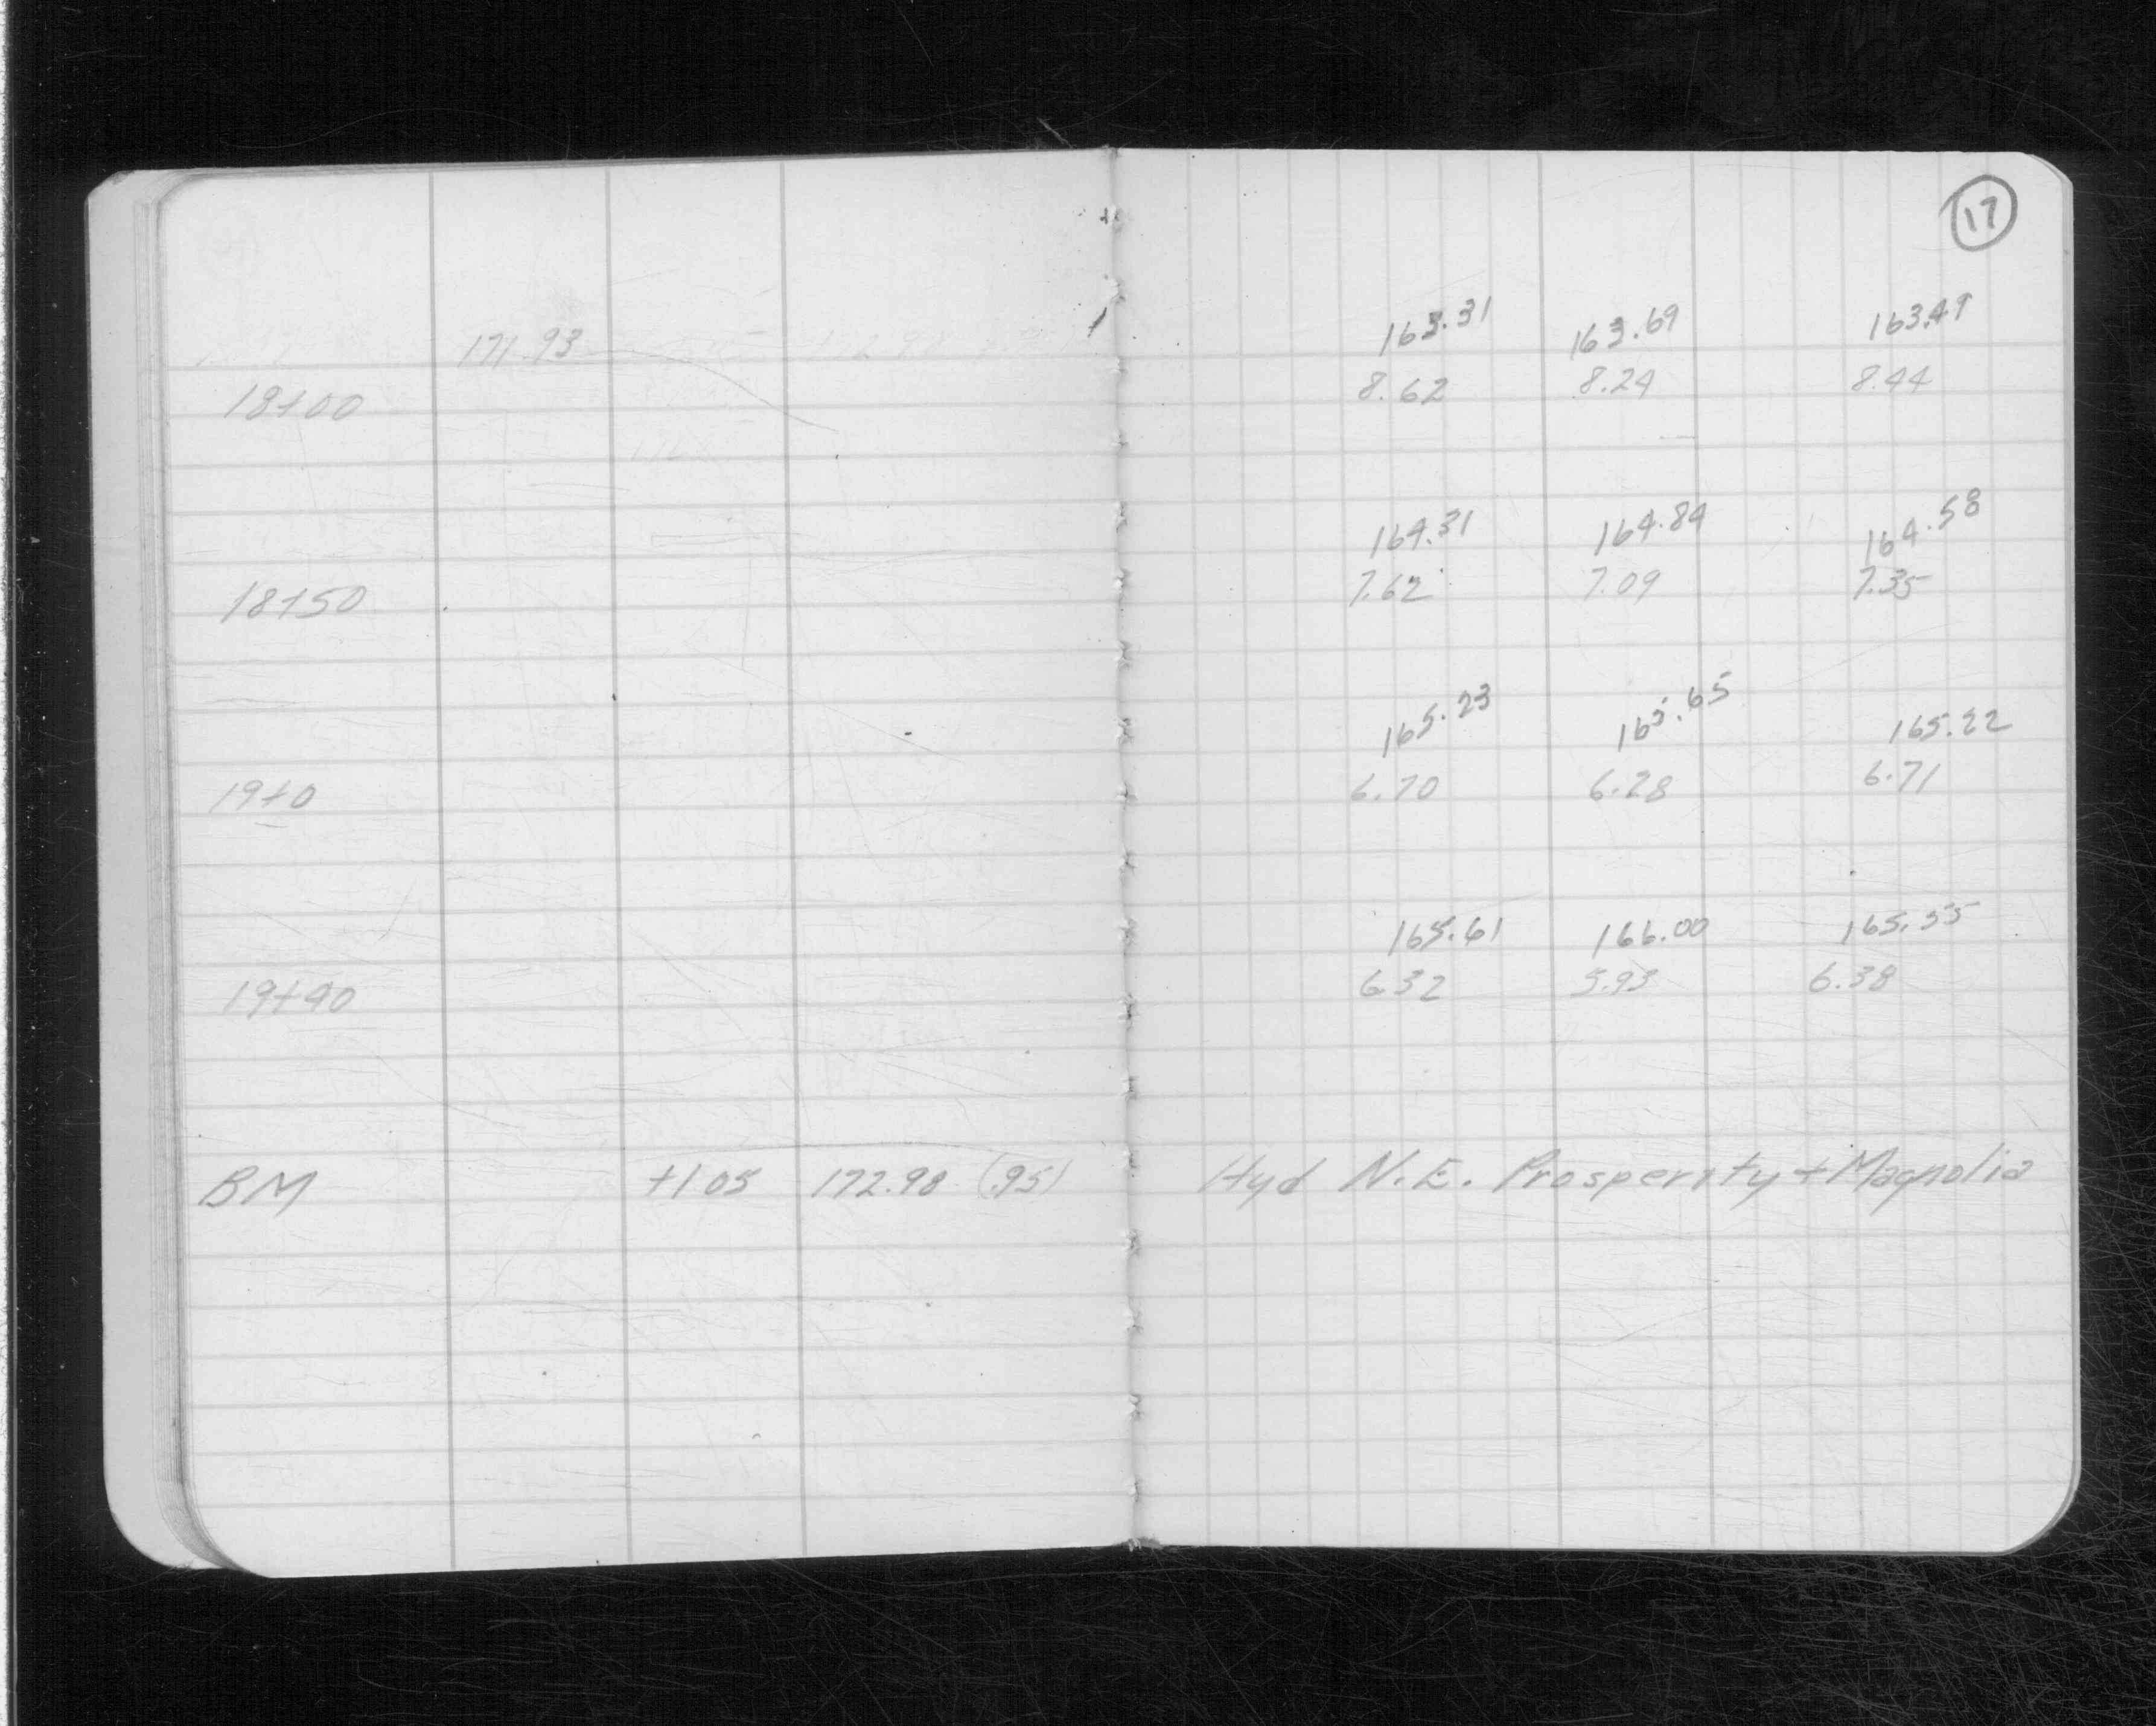 17
171.93 163.31 163.69 163.49
18+00 8.62 8.24 8.44
164.31 164.84 164.58
18+50 7.62 7.09 7.35
165.23 165.65 165.22
19+0 6.70 6.28 6.71
165.61 166.00 165.55
19+40 6.32 5.93 6.38
BM +1.05 172.98 (.95) Hyd N.E. Prosperity + Magnolia